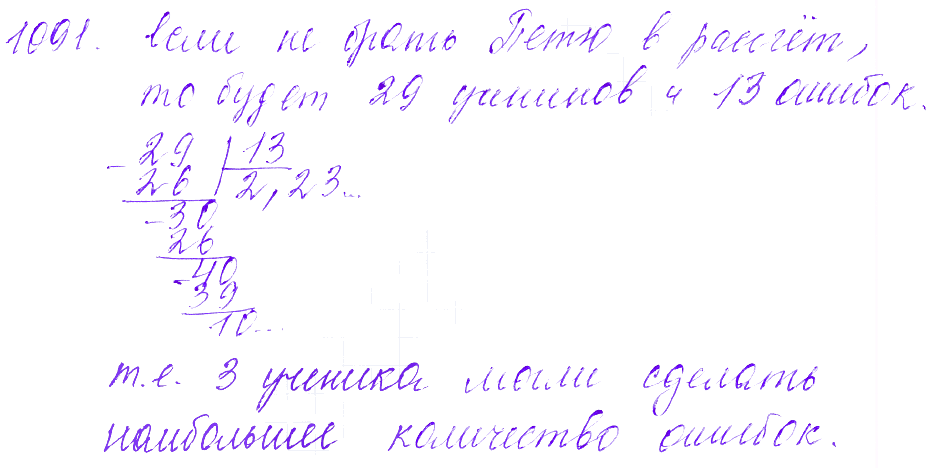 1091. Если не брать Петю в рассчёт,
то будет 29 учеников и 13 ошибок.
- 29 | 13
26 2,23...
- 30
26
- 40
39
10...
т.е. 3 ученика могли сделать
наибольшее количество ошибок.